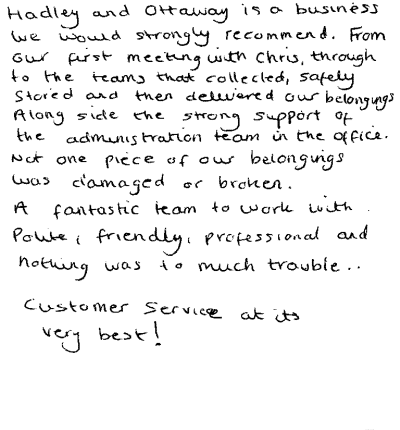 Hadley and Ottaway is a business
we would strongly recommend. From
our first meeting with Chris, through
to the teams that collected, safely
stored and then delivered our belongings
Along side the strong support of
the administration team in the office.
Not one piece of our belongings
was damaged or broken.
A fantastic team to work with.
Polite, friendly, professional and
nothing was to much trouble..
Customer Service at its
very best!